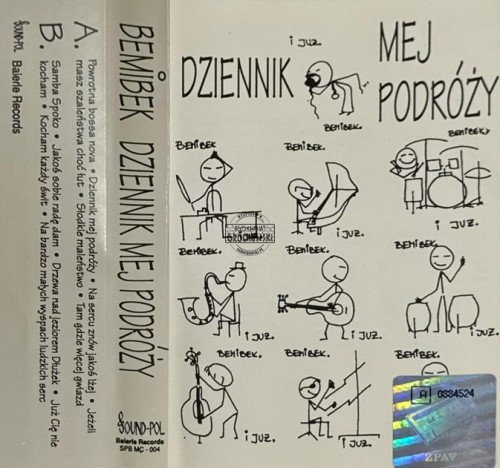 SOUND-POL
Baierle Records
B.
Samba Spoko • Jakoś sobie radę dam • Drzewa nad jeziorem Dłużek • Już Cię nie
kocham • Kocham każdy świt • Na bardzo małych wyspach ludzkich serc
A.
Powrotna bossa nova • Dziennik mej podróży • Na sercu znów jakoś lżej • Jeżeli
masz szaleństwa choć łut • Słodkie maleństwo • Tam gdzie więcej gwiazd
BEMIBEK DZIENNIK MEJ PODRÓŻY
SOUND-POL
Baierle Records
SPB MC - 004
DZIENNIK
MEJ
PODRÓŻY
I JUŻ.
BEMIBEK.
BEMIBEK
BEMIBEK.
BEMIBEK
I JUŻ.
I JUŻ.
BEMIBEK.
BEMIBEK.
I JUŻ.
I JUŻ.
BEMIBEK.
BEMIBEK.
I JUŻ.
I JUŻ.
R 0884524
ZPAV